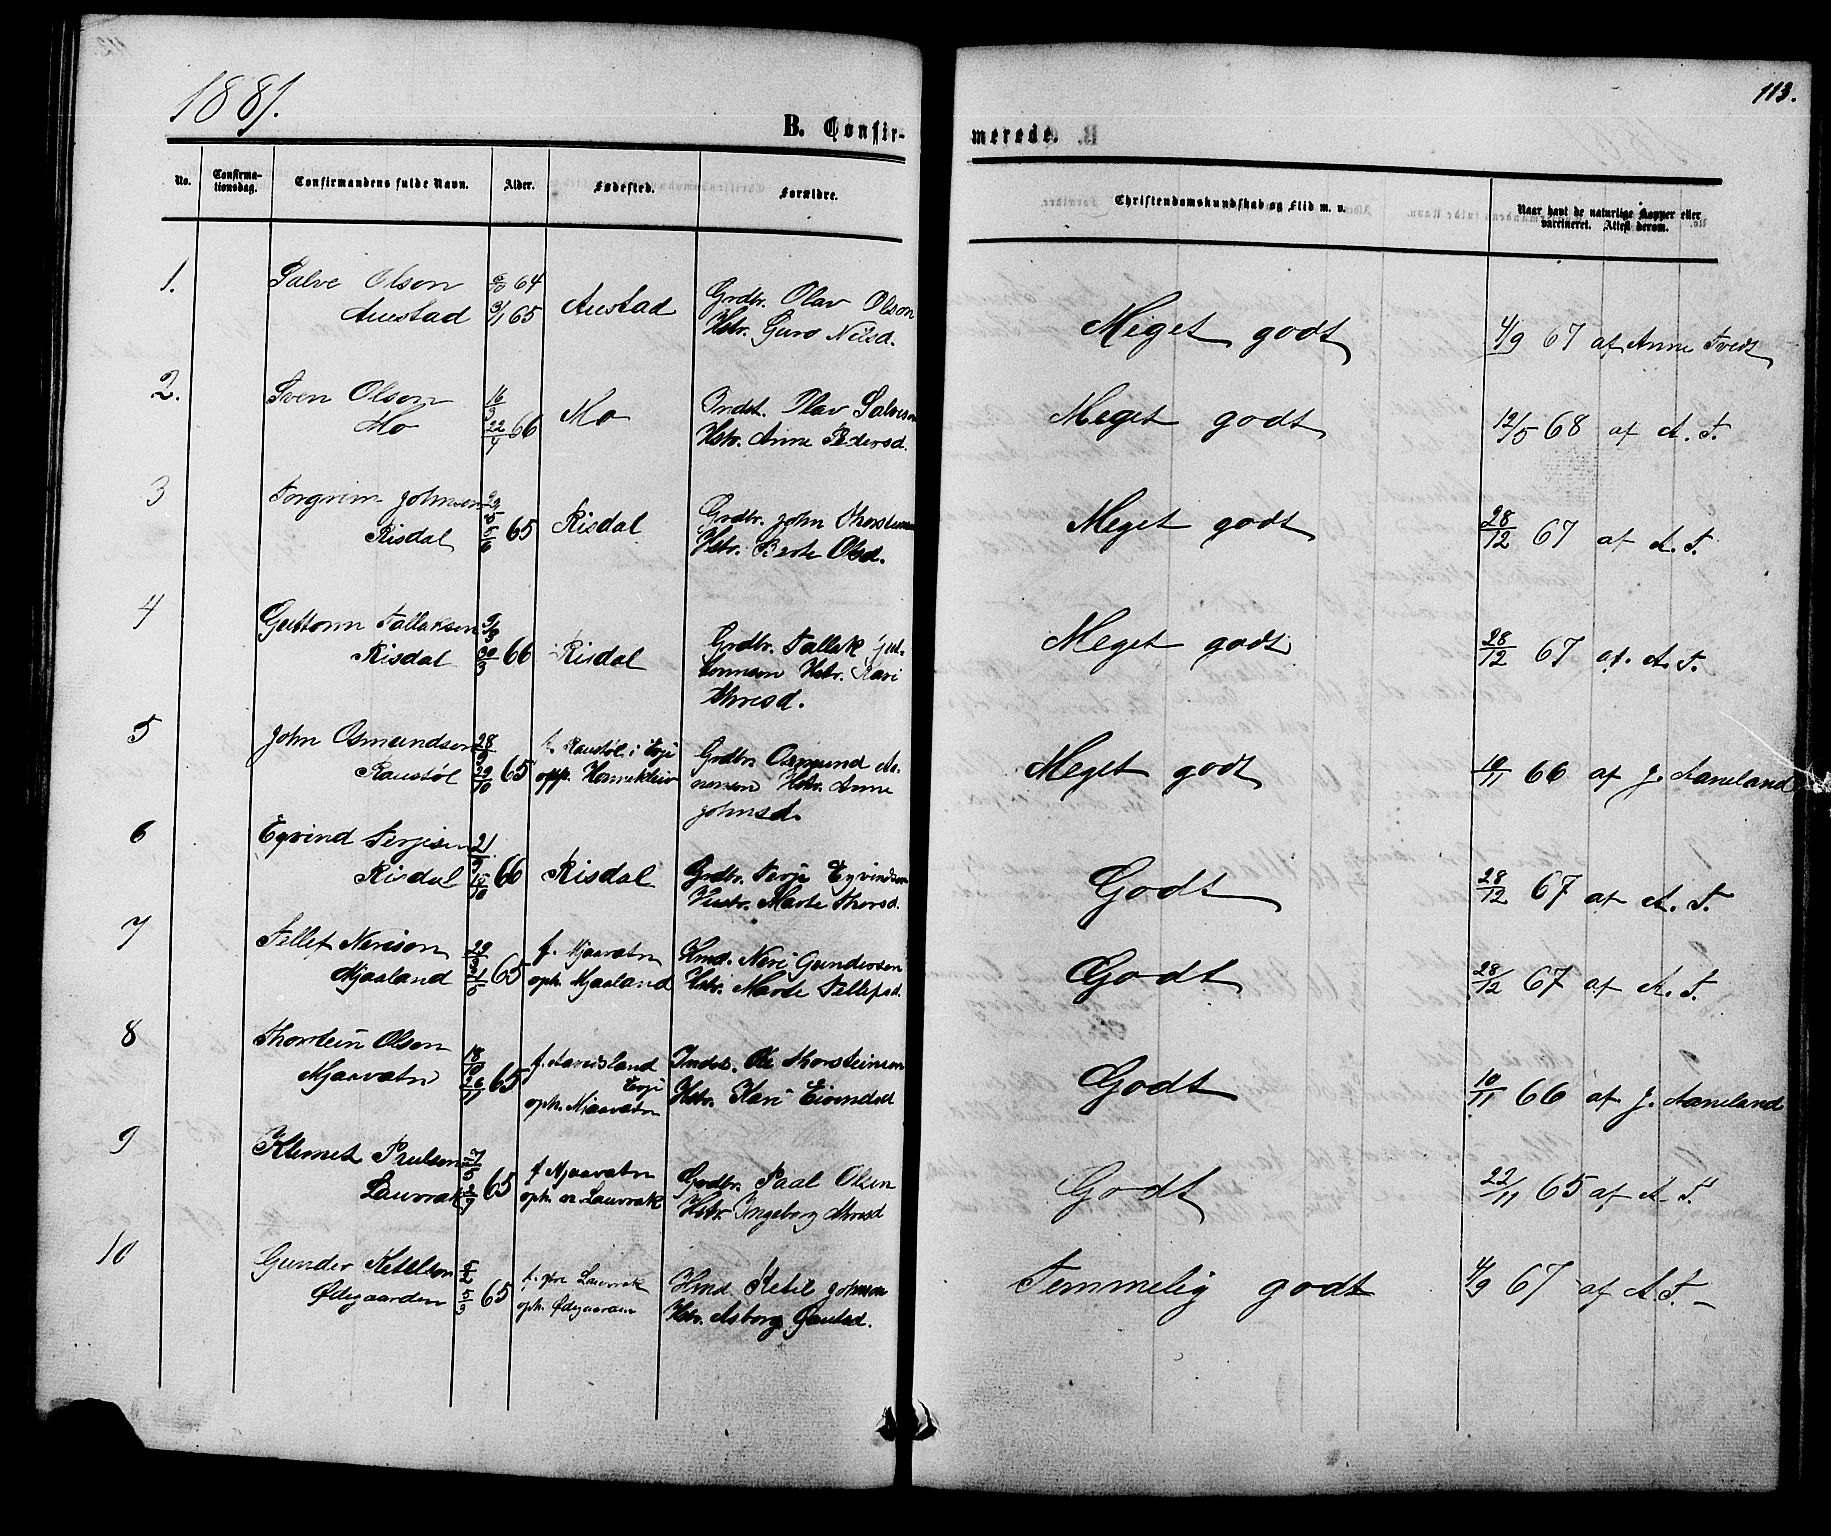 1881.
113.
B. Confir-
merede.
No.
Confirma-
tionsdag.
Confirmandens fulde Navn.
Alder.
Fødested.
Forældre.
Christendomskundskab og Flid m. v.
Naar havt de naturlige Kopper eller
vaccineret. Attest derom.
1.
Salve Olson
Austad
64
3/1 65
Austad
Grdbr. Olav Olson
Hstr. Guro Nilsd.
Meget godt
4/9 67 af Anne Tvedt
2.
Sven Olson
Mo
16/3
22/4 66
Mo
Indst. Olav Salveson
Hstr. Anne Pedersd.
Meget godt
12/5 68 af A. T.
3
Torgrim Johnsen
Risdal
5/6 65
Risdal
Grdbr. John Thorsteinsen
Hstr. Berte Olsd.
Meget godt
28/12 67 af A. T.
4
Guttorm Tallaksen
Risdal
9/3
30/3 66
Risdal
Grdbr. Tallak Gut-
tormsen Hstr. Kari
Thoresd.
Meget godt
28/12 67 af. A. T.
5
John Osmundsen
Raustøl
28/9
29/10 65
f. Raustøl i Evje
opp. Honnekleiv
Grdbr. Osmund Aa-
nensen Hstr. Anne
Johnsd.
Meget godt
10/11 66 af J. Aaneland
6
Eyvind Terjesen
Risdal
21/9
15/10 66
Risdal
Grdbr. Terje Eyvindson
Hustr. Marte Thorsd.
Godt
28/12 67 af A. T.
7
Tellef Nerison
Mjaaland
65
f. Mjaavatn
oph. Mjaaland
Hmd. Neri Gundersen
Hstr. Marte Tellefsd.
Godt
28/12 67 af A. T.
8
Thorstein Olson
Mjaavatn
18/10
26/11 65
f. Aavidsland
Evje
oph. Mjaavatn
Indst. Ole Thorsteinsen
Hstr. Kari Eivindsd
Godt
10/11 66 af J. Aaneland
9
Klemet Paulsen
Lauvrak
65
f. Mjaavatn
oph. Lauvrak
Grdbr. Paal Olsen
Hstr. Ingeborg Thoresd
Godt
22/11 65 af A. T.
10
Gunder Ketelsen
Ødegaarden
5/2
5/3 65
f. Lauvrak
oph. Ødegaarden
Hmd Ketil Johnson
Hstr. Asborg Gautsd.
Temmelig godt
4/9 67 af A T. –